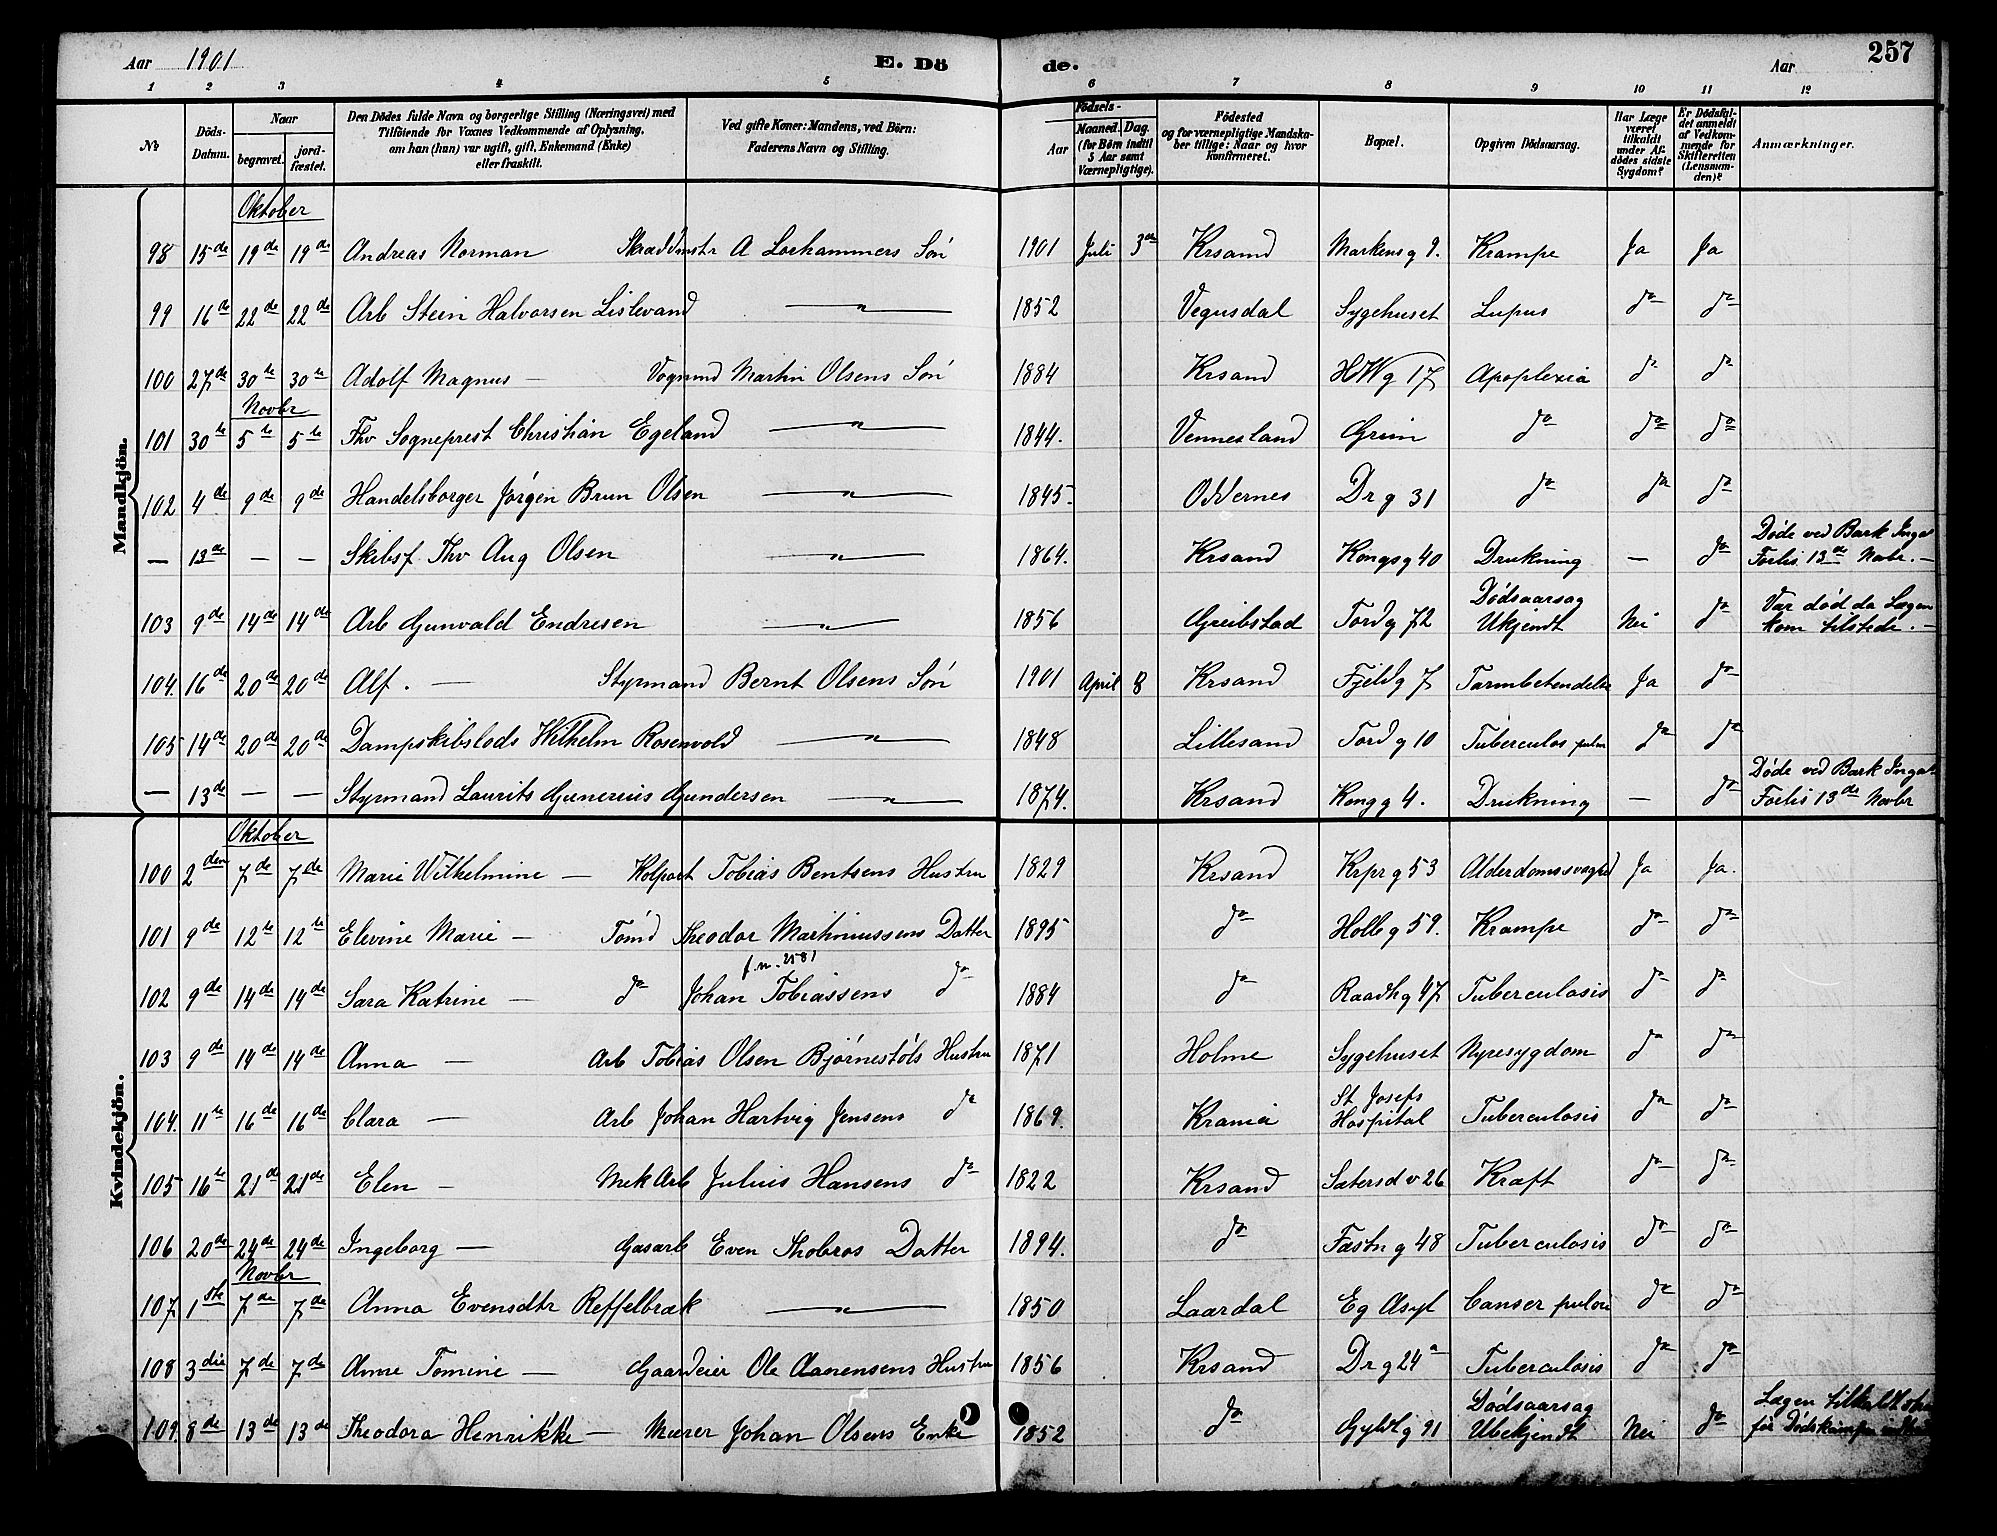 Aar 1901 E. Dö de. Aar 257
1 2 3 4 5 6 7 8 9 10 11 12
No
Döds-Datum.
Naar
begravet.
jord-fæstet.
Den Dödes fulde Navn og borgerlige Stilling (Næringsvei) med
Tilföiende for Voxnes Vedkommende af Oplysning,
om han (hun) var ugift, gift, Enkemand (Enke)
eller fraskilt.
Ved gifte Koner: Mandens, ved Börn:
Faderens Navn og Stilling.
Födsels-
Aar
Maaned. Dag.
(for Börn indtil
5 Aar samt
Værnepligtige).
Födested
og for værnepligtige Mandska-
ber tillige: Naar og hvor
konfirmeret.
Bopæl.
Opgiven Dödsaarsag.
Har Læge
været
tilkaldt
under Af-
dödes sidste
Sygdom?
Er Dödsfal-
det anmeldt
af Vedkom-
mende for
Skifteretten
(Lensman-
den)?
Anmærkninger.
Mandkjön.
Oktober
98 15de 19de 19de Andreas Norman Skræddmstr A Lorhammers Søn 1901 Juli 3die Krsand Markensg 9. Krampe Ja Ja
99 16de 22de 22de Arb Stein Halvorsen Lislevand — " — 1852 Vegusdal Sygehuset Lupus do do
100 27de 30te 30te Adolf Magnus — Vognmd Martin Olsens Søn 1884 Krsand HWg 17 Apoplexia do do
Novbr
101 30te 5te 5te Fhv Sogneprest Christian Egeland — " — 1844. Vennesland Grim do do do
102 4de 9de 9de Handelsborger Jørgen Brun Olsen — " — 1845. Oddernes Drg 31 do do do
— 13de — — Skibsf. Thv Aug Olsen — " — 1864. Krsand Kongsg 40 Drukning — do Døde ved Bark Ingas
Forlis 13de Novbr. —
103 9de 14de 14de Arb Gunvald Endresen — " — 1856 Greibstad Tordg 72 Dødsaarsag
Ukjendt Nei do Var død da Lægen
kom tilstede. —
104. 16de 20de 20de Alf. — Styrmand Bernt Olsens Søn 1901 April 8 Krsand Fjeldg 7 Tarmbetendelse Ja do
105 14de 20de 20de Dampskibslods Wilhelm Rosenvold — " — 1848 Lillesand Tordg 10 Tuberculos pulm do do
— 13de — — Styrmand Laurits Gunerius Gundersen — " — 1874. Krsand Kongg 4. Drukning — do Døde ved Bark Ingas
Forlis 13de Novbr
Kvindekjön.
Oktober
100 2den 7de 7de Marie Wilhelmine — Kolport Tobias Bentsens Hustru 1829 Krsand Krprg 53 Alderdomssvaghed Ja Ja.
101 9de 12te 12te Elevine Marie — Tømd Theodor Martiniussens Datter 1895 do Holbg 59. Krampe do do
f. n. 258!
102 9de 14de 14de Sara Katrine — do Johan Tobiassens do 1884 do Raadhg 47 Tuberculosis do do
103 9de 14de 14de Anna — Arb Tobias Olsen Bjørnestøls Hustru 1871 Holme Sygehuset Nyresygdom do do
104. 11te 16de 16de Clara — Arb Johan Hartvig Jensens do 1869. Krania St Josefs
Hospital Tuberculosis do do
105 16te 21de 21de Elen — Mek Arb Julius Hansens do 1822 Krsand Sætersdv 26 Kræft do do
106 20de 24de 24de Ingeborg — Gasarb Even Skobros Datter 1894. do Fæstng 48 Tuberculosis do do
Novbr
107. 1ste 7de 7de Anna Evensdtr Reffelbræk — " — 1850 Laardal Eg Asyl Canser do do
108 3die 7de 7de Anne Tomine — Gaardeier Ole Aanensens Hustru 1856 Krsand Drg 24a Tuberculosis do do
109. 8de 13de 13de Theodora Henrikke — Murer Johan Olsens Enke 1852 do Gyldlg 91 Dødsaarsag
Ubekjendt Nei do Lægen tilkaldt
før Dødskampen